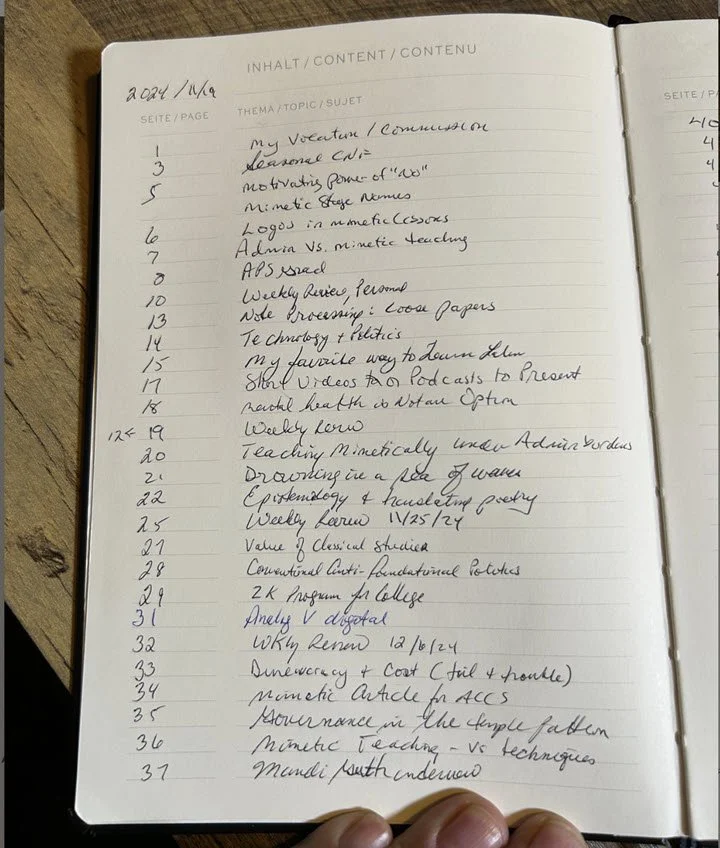 INHALT / CONTENT / CONTENU
2024 / 11/19
SEITE / PAGE THEMA / TOPIC / SUJET
1 My Vocation / Commission
3 Seasonal
5 Motivating power of "No"
Mimetic Stage Names
6 Logos in mimetic lessons
7 Admin Vs. mimetic teaching
8 APS
10 Weekly Review, Personal
13 Note Processing: Loose Papers
14 Technology + Politics
15 My favorite way to Learn
17 Short Videos or Podcasts to Present
18 Mental health is Not an Option
19 Weekly Review
20 Teaching Mimetically under Admin burdens
21 Drowning in a sea of
22 Epistemology & translating poetry
25 Weekly Review 11/25/24
27 Value of Classical Studies
28 Conventional Anti-foundational Politics
29 ZK Program for College
31 Analog V digital
32 Wkly Review 12/6/24
33 Bureaucracy + Cost (toil + trouble)
34 Mimetic Article for ACCS
35 Governance in the temple pattern
36 Mimetic Teaching - vs techniques
37 interview
SEITE / P
40
4
4